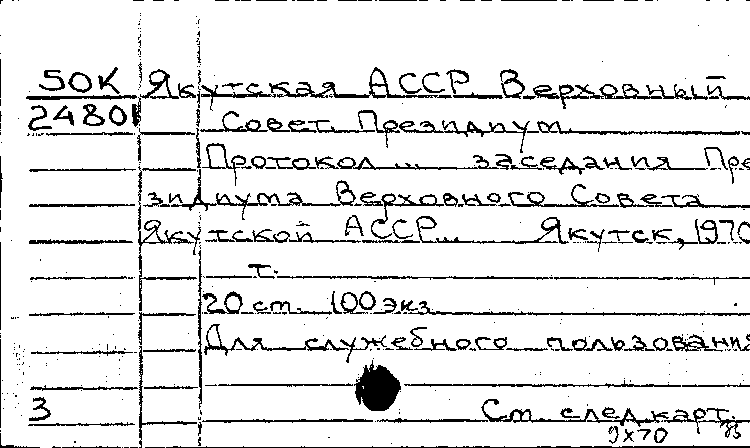 50К Якутская АССР. Верховный
24801 Совет. Президиум.
Протокол ... заседания Пре
зидиума Верховного Совета
Якутской АССР... Якутск, 1970
т.
20 см. 100 экз.
Для служебного пользования
3 См. след. карт.
9х70